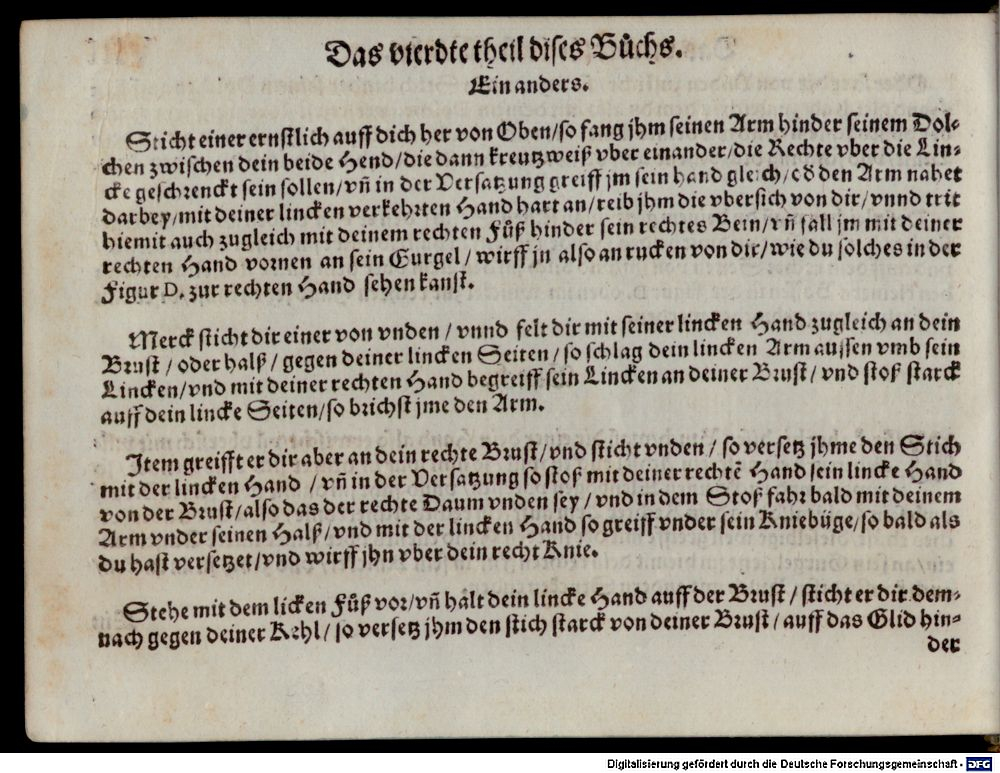 Das vierdte theil dises Bůchs.
Ein anders.
Sticht einer ernstlich auff dich her von Oben/so fang jhm seinen Arm hinder seinem Dol-
chen zwischen dein beide Hend/die dann kreutzweiß vber einander/die Rechte vber die Lin-
cke geschrenckt sein sollen/vñ in der Versatzung greiff jm sein hand gleich/ob den Arm nahet
darbey/mit deiner lincken verkehrten Hand hart an/reib jhm die vbersich von dir/vnnd trit
hiemit auch zugleich mit deinem rechten Fůß hinder sein rechtes Bein/vñ fall jm mit deiner
rechten Hand vornen an sein Gurgel/wirff jn also an rucken von dir/wie du solches in der
Figur D. zur rechten Hand sehen kanst.
Merck sticht dir einer von vnden/vnnd felt dir mit seiner lincken Hand zugleich an dein
Brust/oder halß/gegen deiner lincken Seiten/so schlag dein lincken Arm aussen vmb sein
Lincken/vnd mit deiner rechten Hand begreiff sein Lincken an deiner Brust/vnd stoß starck
auff dein lincke Seiten/so brichst jme den Arm.
Item greifft er dir aber an dein rechte Brust/vnd sticht vnden/so versetz jhme den Stich
mit der lincken Hand/vñ in der Versatzung so stoß mit deiner rechtẽ Hand sein lincke Hand
von der Brust/also das der rechte Daum vnden sey/vnd in dem Stoß fahr bald mit deinem
Arm vnder seinen Halß/vnd mit der lincken Hand so greiff vnder sein Kniebüge/so bald als
du hast versetzet/vnd wirff jhn vber dein recht Knie.
Stehe mit dem licken Fůß vor/vñ halt dein lincke Hand auff der Brust/sticht er dir dem-
nach gegen deiner Kehl/so versetz jhm den stich starck von deiner Brust/auff das Glid hin-
der
Digitalisierung gefördert durch die Deutsche Forschungsgemeinschaft - DFG